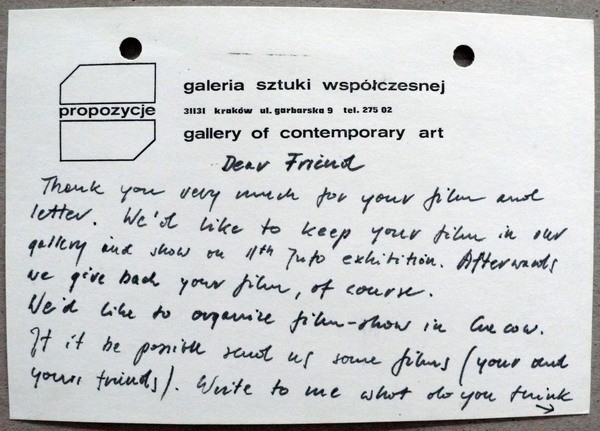 galeria sztuki współczesnej
propozycje
31131 kraków ul. garbarska 9 tel. 275 02
gallery of contemporary art
Dear Friend
Thank you very much for your film and
letter. We'd like to keep your film in our
gallery and show on 11th Info exhibition. Afterwards
we give back your film, of course.
We'd like to organize film-show in Cracow.
If it be possible send us some films (your and
yours friends). Write to me what do you think
→